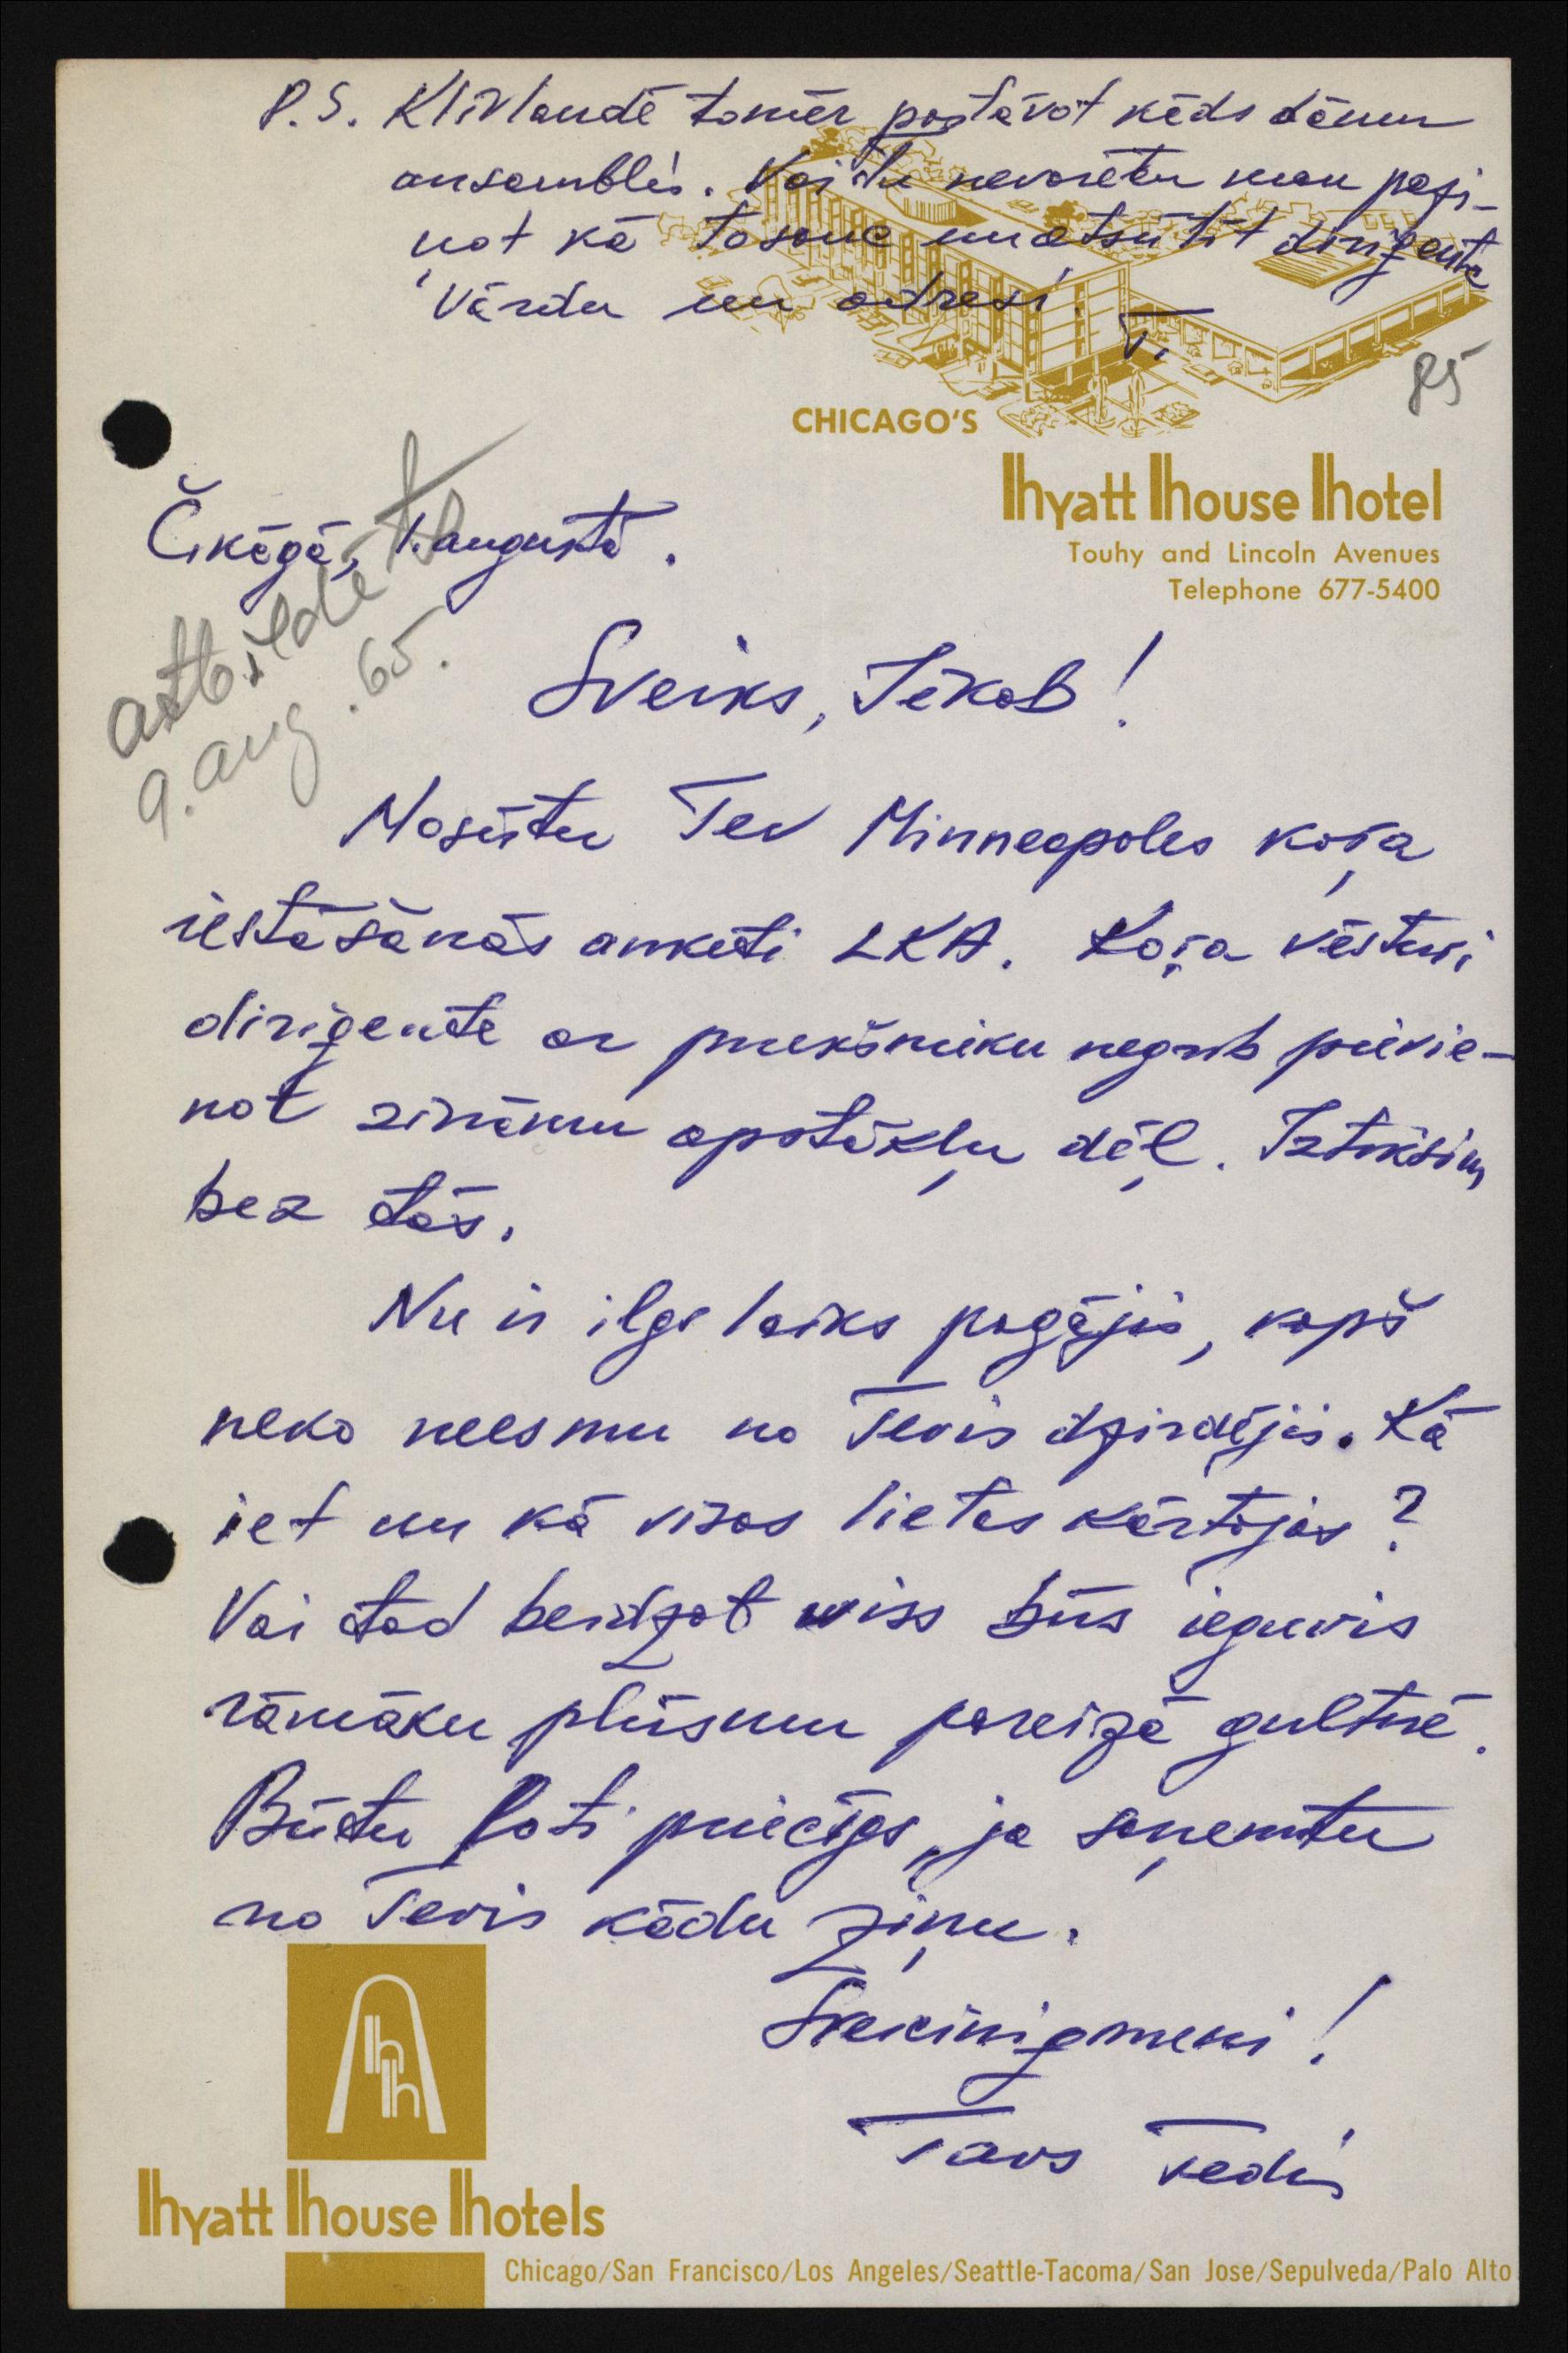 P.S. Klīvlandē tomēr pastāvot kāds dāmu
ansamblis. Vai Tu nevarētu man pazi-
not kā to sauc un atsūtīt dirigenta
vārdu un adresi. T.
85
CHICAGO'S
hyatt house hotel
Touhy and Lincoln Avenues
Telephone 677-5400
Čikāgā, 1. augustā.
atbildēts
9. aug. 65.
Sveiks, Jēkab!
Nosūtu Tev Minneapoles kora
iestāšanās anketi LKA. Kora vēsturi
diriģente ar priekšnieku negrib pievie-
not zināmu apstākļu dēļ. Iztiksim
bez tās.
Nu ir ilgs laiks pagājis, kopš
neko neesmu no Tevis dzirdējis. Kā
iet un kā visas lietas kārtojas?
Vai tad beidzot viss būs ieguvis
rāmāku plūsmu pareizā gultnē.
Būtu ļoti priecīgs, ja saņemtu
no Tevis kādu ziņu.
Sveicinājumi!
Tavs Tedis
hyatt house hotels
Chicago/San Francisco/Los Angeles/Seattle-Tacoma/San Jose/Sepulveda/Palo Alto